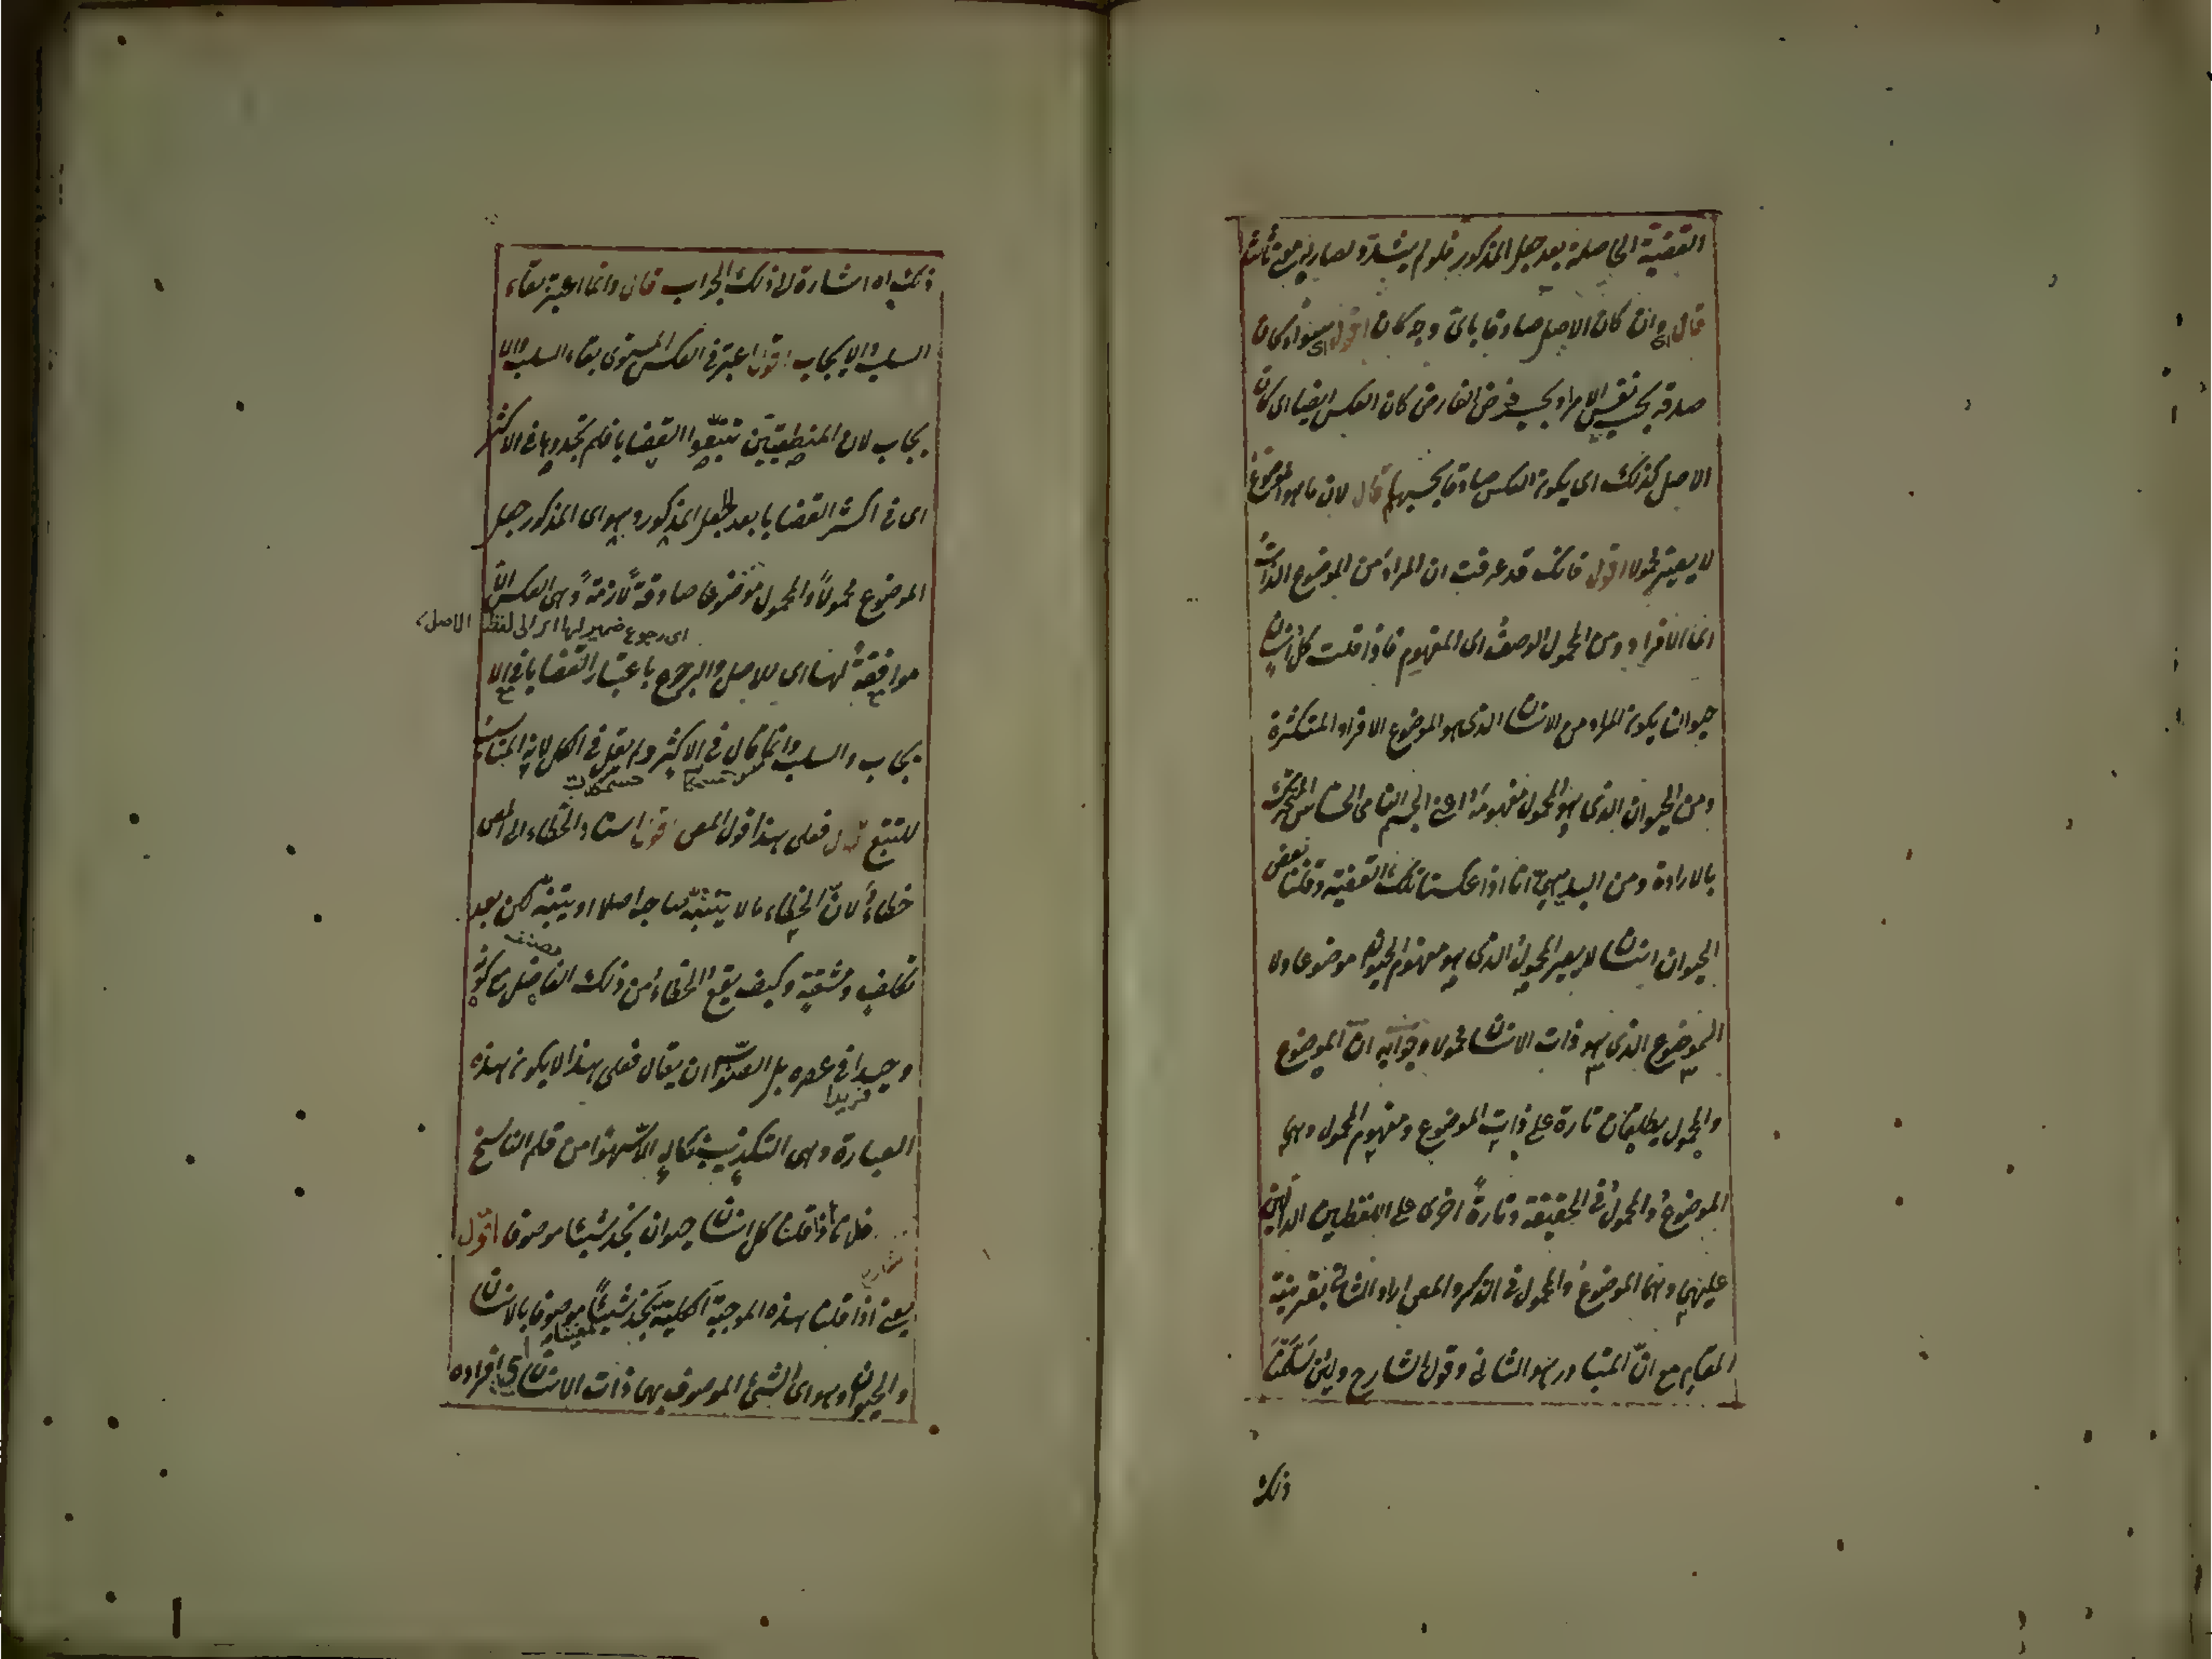 القضية الحاصلة بعد جعل المذكور فلو لم يشد ولصار
قال وان كان الاصل صادقا باى وجه كان اقول اى سواء كان
صدقه بحسب نفس الامر او بحسب فرض الفارض كان العكس ايضا اى كان
الاصل كذلك اى يكون العكس صادقا بحسبهما قال لان ما هو الموضوع
لا يصير محمولا اقول فانك قد عرفت ان المراد من الموضوع الذات
اى الافراد ومن المحمول الوصف اى المفهوم فاذا قلت كل انسان
حيوان يكون المراد من الانسان الذى هو الموضوع الافراد المتكثرة
ومن الحيوان الذى هو المحمول مفهومه اعنى الجسم النامى الحساس المتحرك
بالارادة ومن البديهى انا اذا عكسنا تلك القضية وقلنا بعض
الحيوان انسان لا يصير المحمول الذى هو مفهوم الحيوان موضوعا ولا
الموضوع الذى هو ذات الانسان محمولا وجوابه ان الموضوع
والمحمول يطلقان تارة على ذات الموضوع ومفهوم المحمول وهى
الموضوع والمحمول فى الحقيقة وتارة اخرى على اللفظين الدالين
عليهما وهما الموضوع والمحمول فى الذكر والمص اراد الثانى بقرينة
المقام مع ان المتبادر هو الثانى وقول الشارح ولئن سلمنا
ذلك
ذلك اه اشارة الى ذلك الجواب قال وانما اعتبر بقاء
السلب والايجاب اقول اعتبر فى العكس المستوى بقاء السلب والا
يجاب لان المنطقيين تتبعوا القضايا فلم يجدوها فى الاكثر
اى فى اكثر القضايا بعد الجعل المذكور وهو اى المذكور جعل
الموضوع محمولا والمحمول موضوعا صادقة لازمة وهى العكس الا
اى رجوع ضمير لها الى لفظ الاصل
موافقة لها اى للاصل والرجوع باعتبار القضايا فى الا
يجاب والسلب وانما قال فى الاكثر ولم يقل فى الكل لانه المناسب
للتتبع قال فعلى هذا قول المص اقول اسناد الخطاء الى المص
خطاء لان الخطاء ما لا يتنبه صاحبه اصلا او يتنبه لكن بعد
مصنف
تكلف ومشقة وكيف يقع الخطاء من ذلك الفاضل مع كونه
وحيدا فى عصره بل الصواب ان يقال فعلى هذا لا يكون هذه
فريدا
العبارة وهى التكذيب بحاله الا سهوا من قلم الناسخ
فلانا اذا قلنا كل انسان حيوان نجد شيئا موصوفا اقول
شارح
يعنى اذا قلنا هذه الموجبة الكلية نجد شيئا موصوفا بالانسان
معينا
والحيوان وهو اى الشئ الموصوف بهما ذات الانسان اى افراده